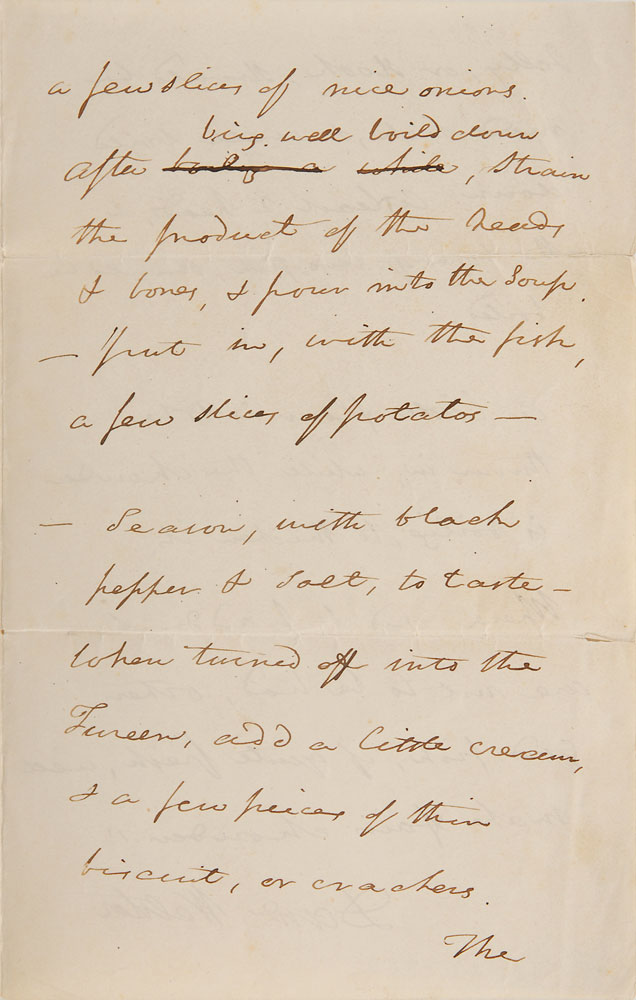 a few slices of nice onions.
being well boild down
after boilg a while, strain
the product of the heads
& bones, & pour into the soup.
— Put in, with the fish,
a few slices of potatos —
— Season, with black
pepper & salt, to taste —
When turned off into the
Tureen, add a little cream,
& a few peices of thin
biscuit, or crackers.
The